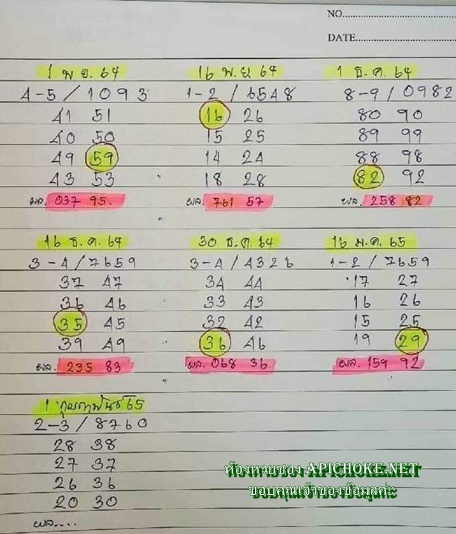 NO.
DATE.
1 พ.ย. 64
4-5 / 1093
41 51
40 50
49 59
43 53
ผล. 037 95.
16 พ.ย 64
1-2 / 6548
16 26
15 25
14 24
18 28
ผล. 761 57
1 ธ.ค. 64
8-9 / 0982
80 90
89 99
88 98
82 92
ผล. 258 82
16 ธ.ค. 64
3-4 / 7659
37 47
36 46
35 45
39 49
ผล. 235 83
30 ธ.ค. 64
3-4 / 4326
34 44
33 43
32 42
36 46
ผล. 068 36
16 ม.ค. 65
1-2 / 7659
17 27
16 26
15 25
19 29
ผล. 159 92
1 กุมภาพันธ์ 65
2-3 / 8760
28 38
27 37
26 36
20 30
ผล....
ห้องหวยซอง APICHOKE.NET
ขอบคุณเจ้าของข้อมูลค่ะ